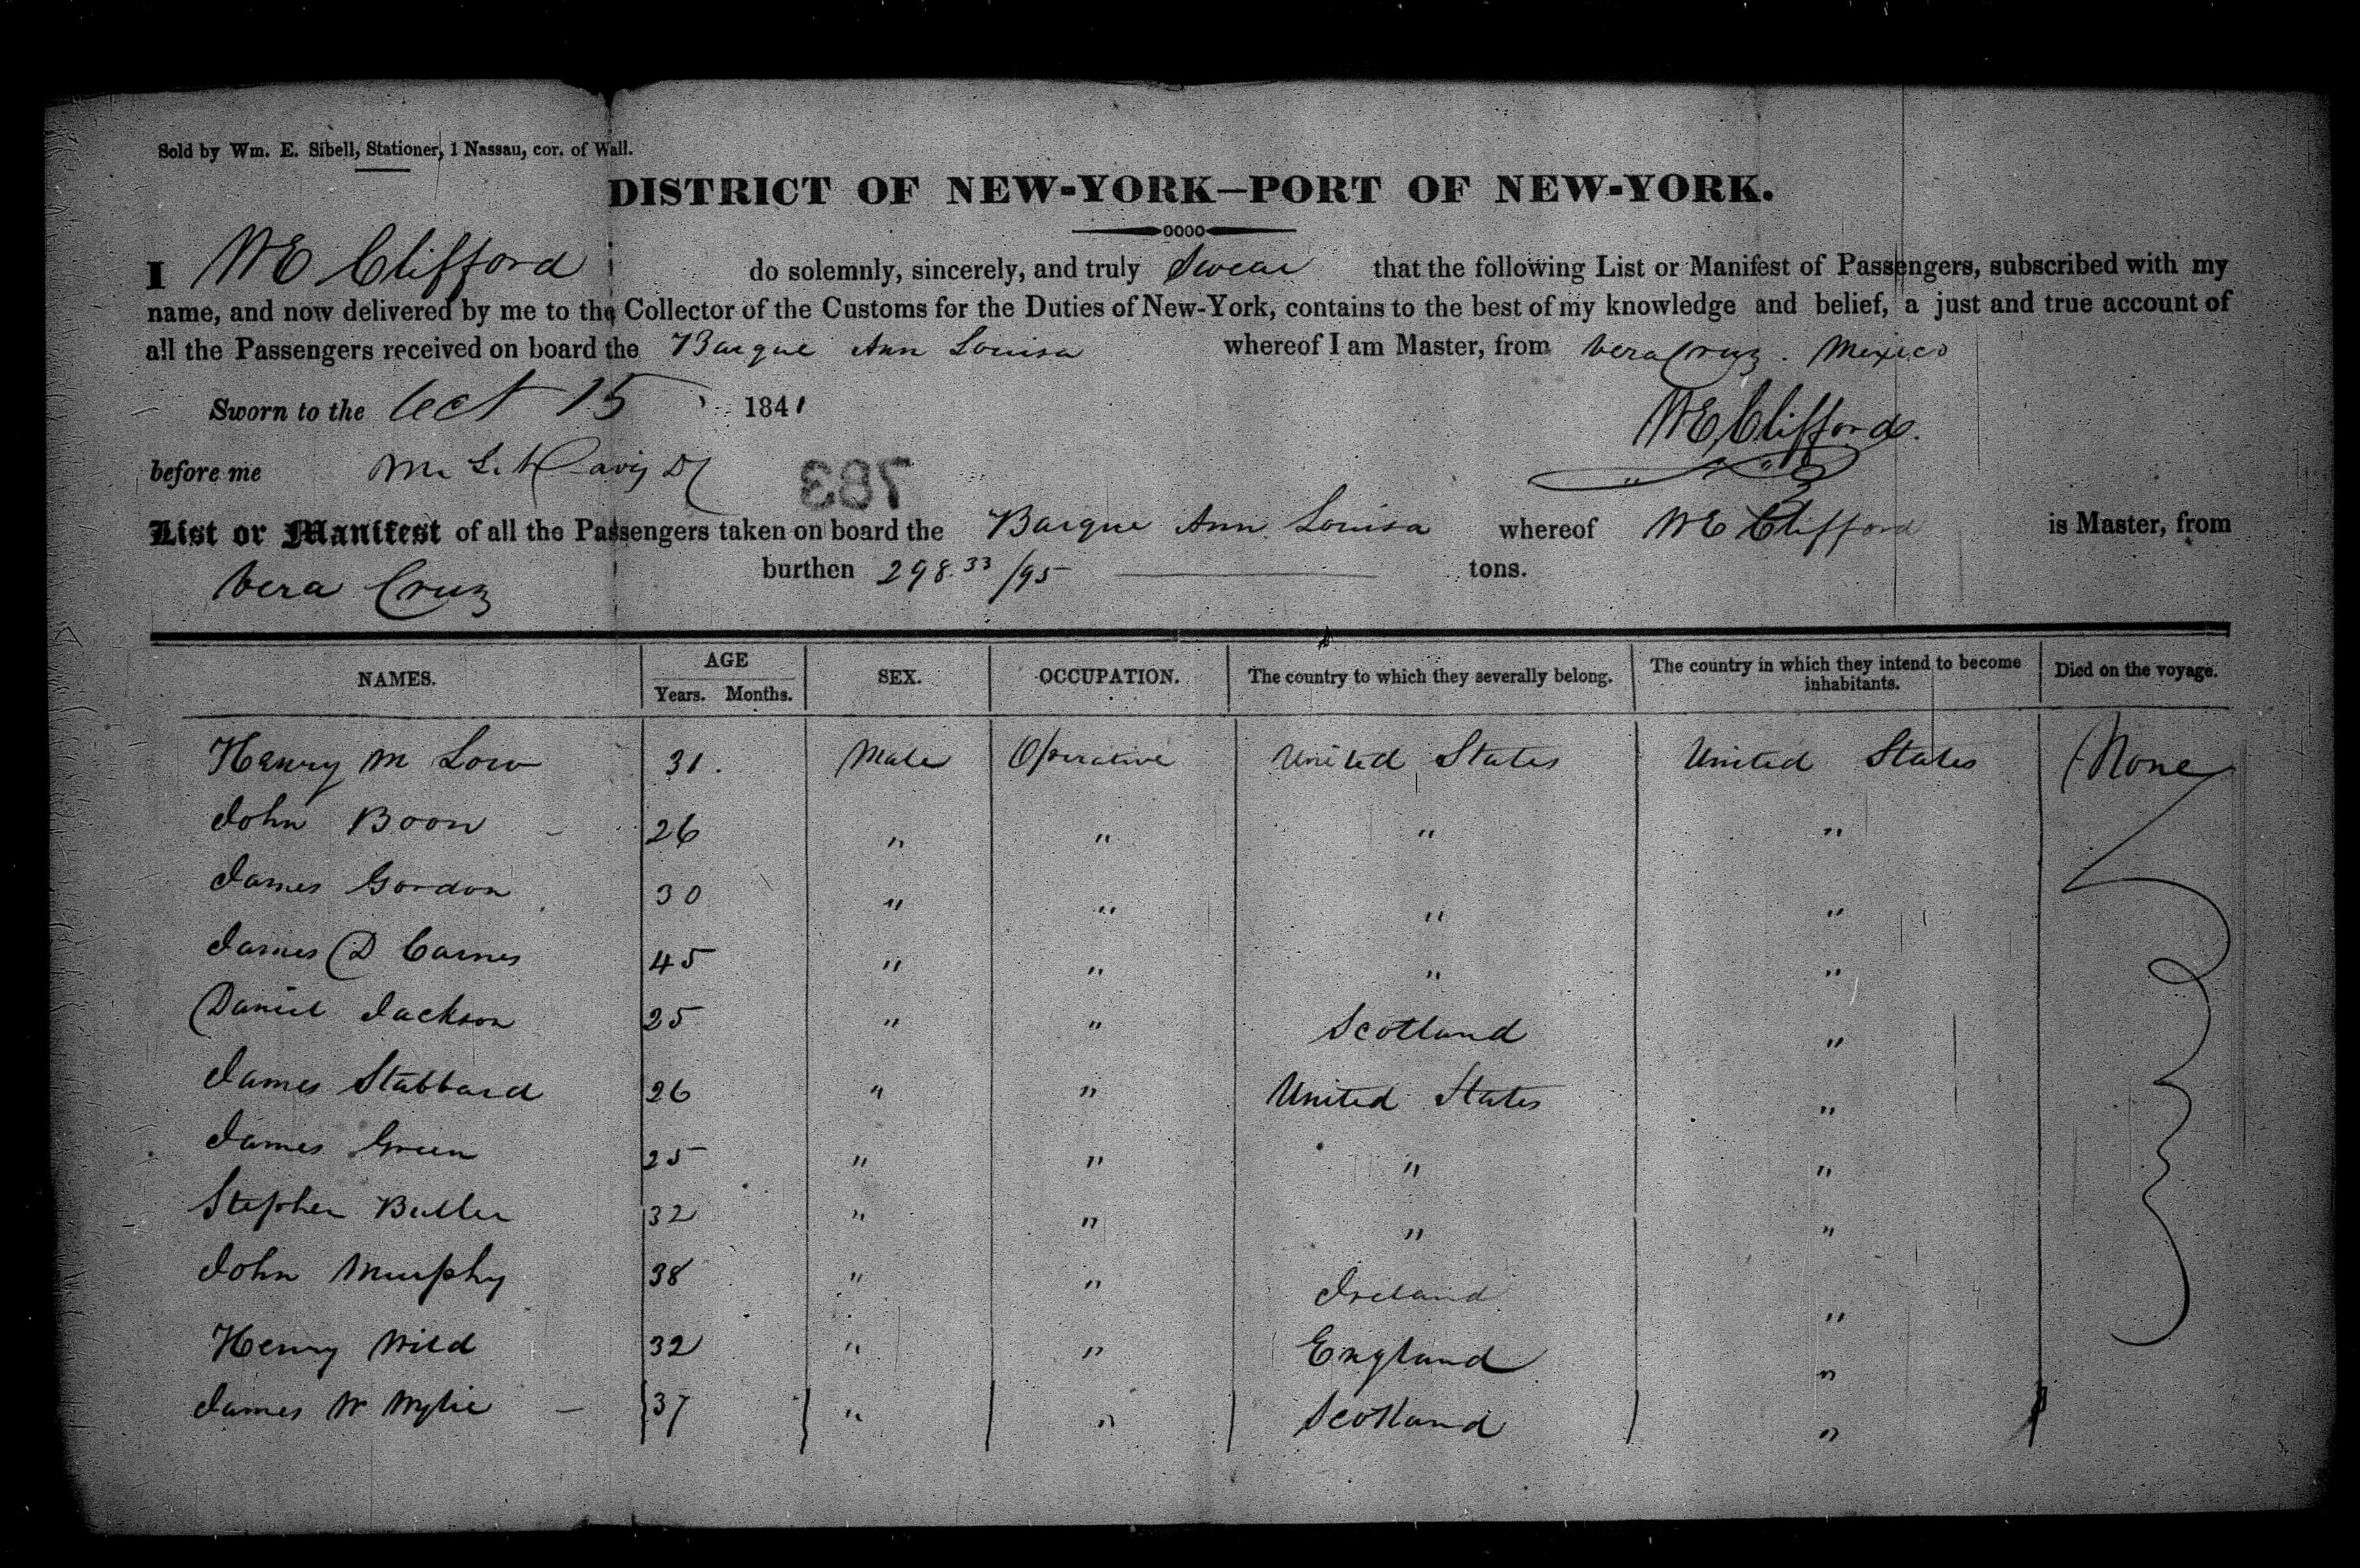 Sold by Wm. E. Sibell, Stationer, 1 Nassau, cor. of Wall.
DISTRICT OF NEW-YORK—PORT OF NEW-YORK.
I W E Clifford do solemnly, sincerely, and truly Swear that the following List or Manifest of Passengers, subscribed with my
name, and now delivered by me to the Collector of the Customs for the Duties of New-York, contains to the best of my knowledge and belief, a just and true account of
all the Passengers received on board the Barque Ann Louisa whereof I am Master, from Vera Cruz. Mexico
Sworn to the Oct 15 1841 W E Clifford.
before me Davis
783
List or Manifest of all the Passengers taken on board the Barque Ann Louisa whereof W E Clifford is Master, from
Vera Cruz burthen 298 33/95 tons.
NAMES. AGE Years. Months. SEX. OCCUPATION. The country to which they severally belong. The country in which they intend to become inhabitants. Died on the voyage.
Henry M Low 31. Male Operative United States United States None
John Boon - 26 " " " "
James Gordon 30 " " " "
James D Carnes 45 " " " "
Daniel Jackson 25 " " Scotland "
James Stabbard 26 " " United States "
James Green 25 " " " "
Stephen Butler 32 " " " "
John Murphy 38 " " Ireland "
Henry Wild 32 " " England "
James W Wylie - 37 " " Scotland "